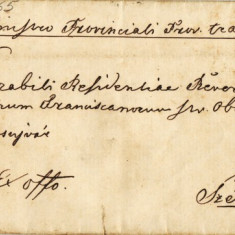 nistro Provinciali Prov. tra
rabili Residentiae Rever
rum Franciscanorum
Ex offo.
Szé